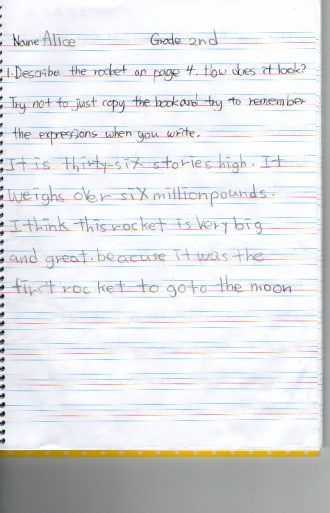 Name Alice Grade 2nd
1. Describe the rocket on page 4. How does it look?
Try not to just copy the book and try to remember
the expressions when you write.
It is thirty-six stories high. It
weighs over six million pounds.
I think this rocket is very big
and great. beacuse it was the
first rocket to go to the moon